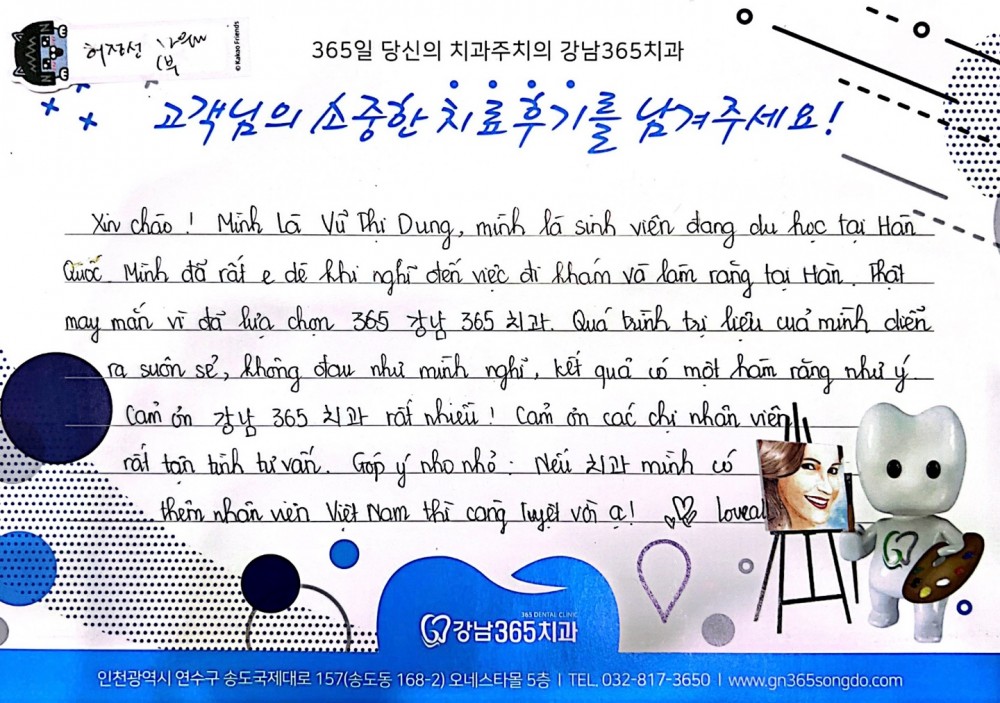 허장선
© Kakao Friends
365일 당신의 치과주치의 강남365치과
고객님의 소중한 치료후기를 남겨주세요!
Xin chào! Mình là Vũ Thị Dung, mình là sinh viên đang du học tại Hàn
Quốc. Mình đã rất e dè khi nghĩ đến việc đi khám và làm răng tại Hàn. Thật
may mắn vì đã lựa chọn 365 강남 365 치과. Quá trình trị liệu cuả mình diễn
ra suôn sẻ, không đau như mình nghĩ, kết quả có một hàm răng như ý.
Cảm ơn 강남 365 치과 rất nhiều! Cảm ơn các chị nhân viên
rất tận tình tư vấn. Góp ý nho nhỏ: Nếu 치과 mình có
thêm nhân viên Việt Nam thì càng tuyệt vời ạ! Loveall
365 DENTAL CLINIC
강남365치과
인천광역시 연수구 송도국제대로 157(송도동 168-2) 오네스타몰 5층 I TEL. 032-817-3650 I www.gn365songdo.com